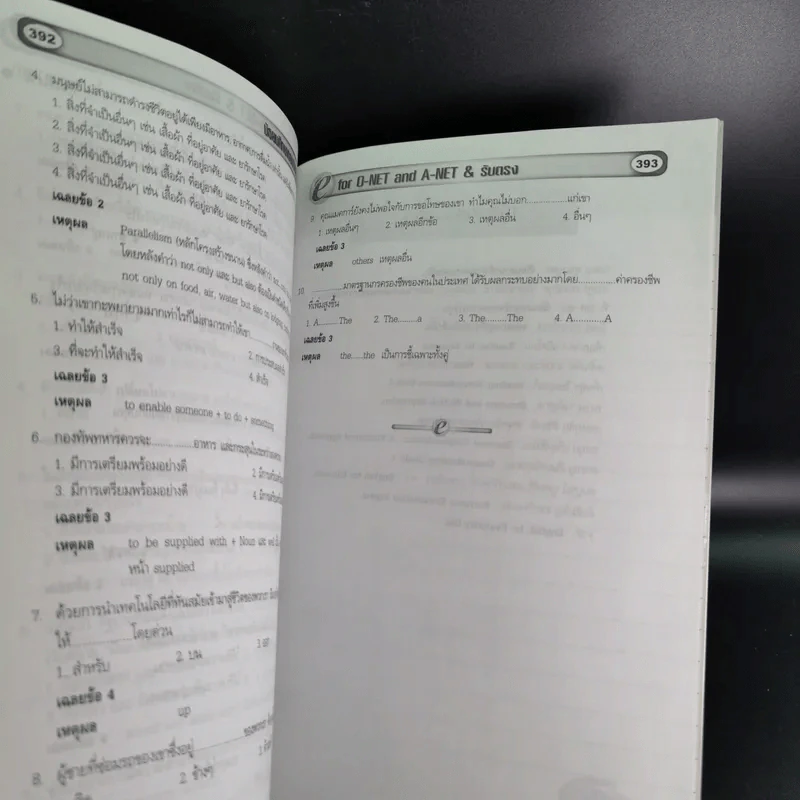 392
4. มนุษย์ไม่สามารถดำรงชีวิตอยู่ได้เพียงมีอาหาร อากาศ
1. สิ่งที่จำเป็นอื่นๆ เช่น เสื้อผ้า ที่อยู่อาศัย และ ยารักษาโรค
2. สิ่งที่จำเป็นอื่นๆ เช่น เสื้อผ้า ที่อยู่อาศัย และ ยารักษาโรค
3. สิ่งที่จำเป็นอื่นๆ เช่น เสื้อผ้า ที่อยู่อาศัย และ ยารักษาโรค
4. สิ่งที่จำเป็นอื่นๆ เช่น เสื้อผ้า ที่อยู่อาศัย และ ยารักษาโรค
เฉลยข้อ 2
เหตุผล Parallelism (หลักโครงสร้างขนาน) ซึ่งหลังคำว่า not
โดยหลังคำว่า not only และ but also
not only on food, air, water but also on
5. ไม่ว่าเขาจะพยายามมากเท่าไรก็ไม่สามารถทำให้เขา
1. ทำให้สำเร็จ
3. ที่จะทำให้สำเร็จ 4. สำเร็จ
เฉลยข้อ 3
เหตุผล to enable someone + to do + something
6. กองทัพทหารควรจะ..........อาหาร และกระสุนในระหว่างสงคราม
1. มีการเตรียมพร้อมอย่างดี
3. มีการเตรียมพร้อมอย่างดี
เฉลยข้อ 3
เหตุผล to be supplied with + Noun และ well
หน้า supplied
7. ด้วยการนำเทคโนโลยีที่ทันสมัยเข้ามาสู่ชีวิตของพวกเรา
ให้..............โดยด่วน
1. สำหรับ 2. บน
เฉลยข้อ 4
เหตุผล up
8. ผู้ชายที่ซ่อมรถของเขาซึ่งอยู่..............
2. ข้างๆ
e for O-NET and A-NET & รับตรง 393
9. คุณแมคการ์ยังคงไม่พอใจกับการขอโทษของเขา ทำไมคุณไม่บอก..............แก่เขา
1. เหตุผลอื่นๆ 2. เหตุผลอีกข้อ 3. เหตุผลอื่น 4. อื่นๆ
เฉลยข้อ 3
เหตุผล others เหตุผลอื่น
10. ..............มาตรฐานการครองชีพของคนในประเทศ ได้รับผลกระทบอย่างมากโดย..............ค่าครองชีพ
ที่เพิ่มสูงขึ้น
1. A..........The 2. The........a 3. The.........The 4. A...........A
เฉลยข้อ 3
เหตุผล the.....the เป็นการชี้เฉพาะทั้งคู่
e